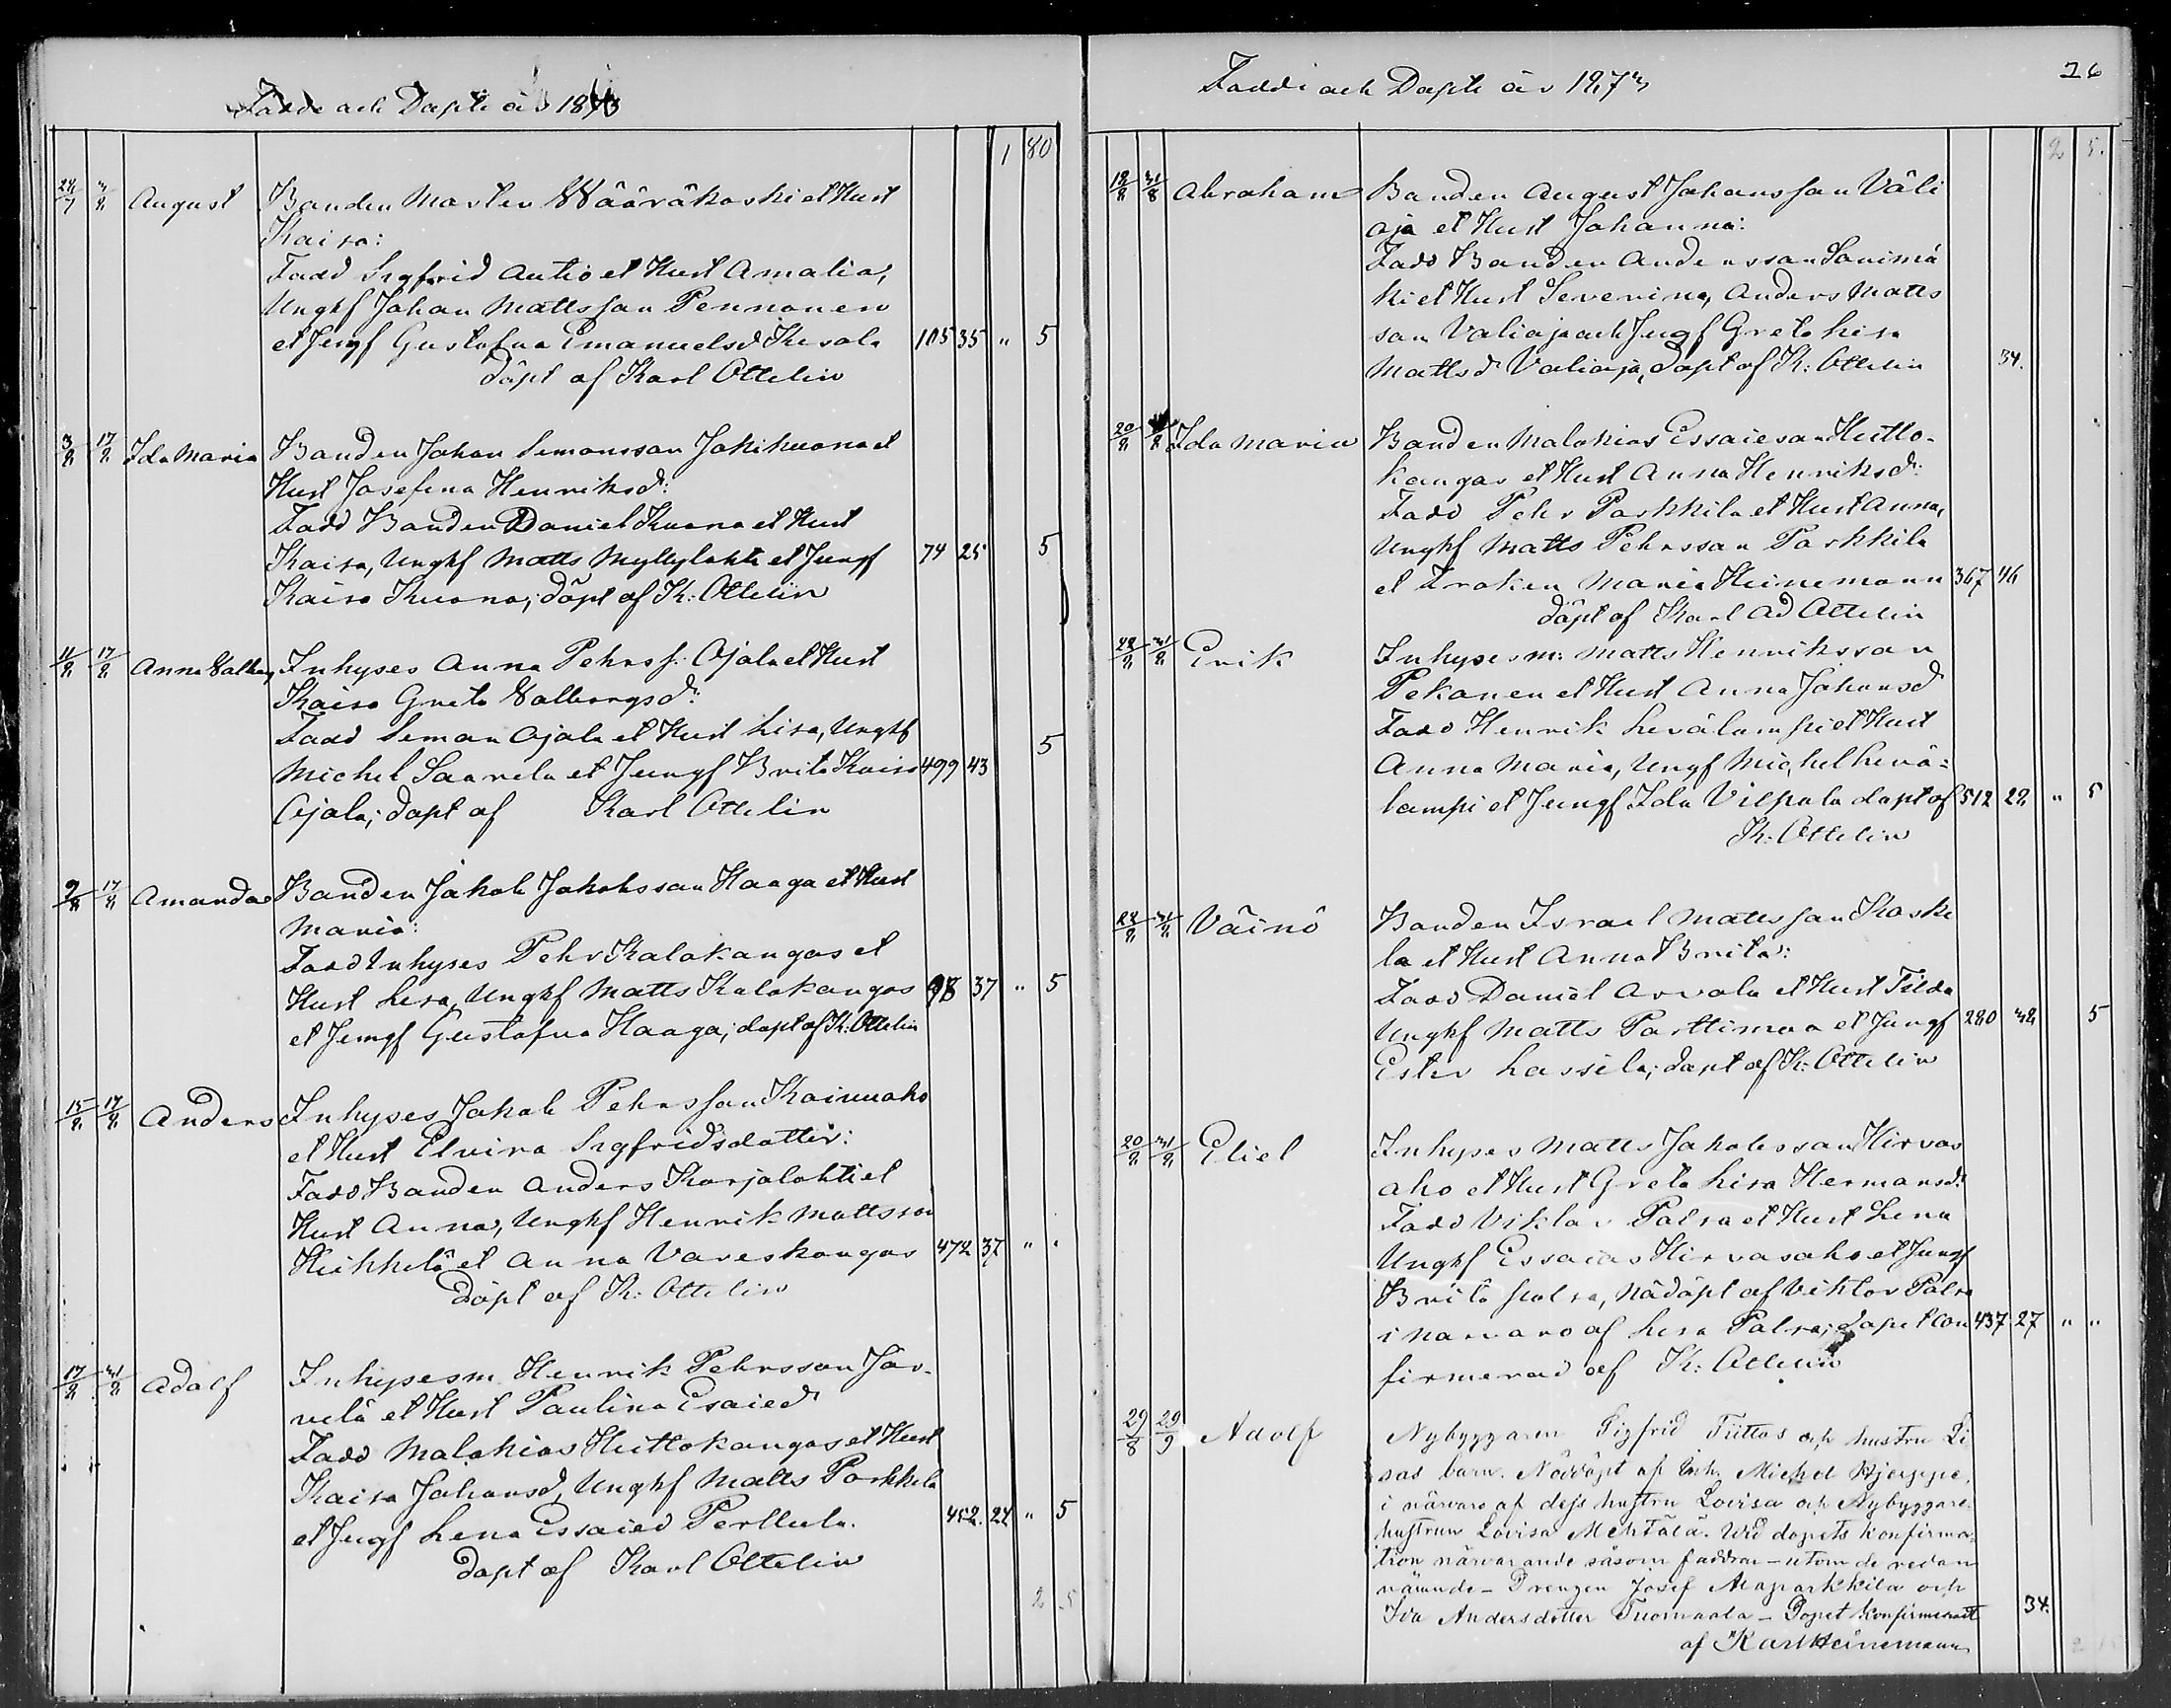 Födde och Döpte år 1873
1 80
24/7 3/8 August Bonden Marten Wääräkoski et Hust
Kaisa:
Fadd Sigfrid Autio et Hust Amalia,
Ungkf Johan Mattsson Pennanen
et Jungf Gustafva Emanuelsd Kesola 105 35 " 5
döpt af Karl Ottelin
3/8 17/8 Ida Maria Bonden Johan Simonsson Jokikuona et
Hust Josefina Henriksdr:
Fadd Bonden Daniel Kuona et Hust
Kaisa, Ungkf Matts Myllylahti et Jungf 74 25 5
Kaisa Kuona; döpt af K: Ottelin
11/8 17/8 Anna Valborg Inhyses Anna Pehrs: Ojala et Hust
Kaisa Greta Valborgsdr:
Fadd Simon Ojala et Hust Lisa, Ungkf
Michel Saarela et Jungf Brita Kaisa 499 43 5
Ojala; döpt af Karl Ottelin
9/8 17/8 Amanda Bonden Jakob Jakobsson Haaga et Hust
Maria:
Fadd Inhyses Pehr Kalakangas et
Hust Lisa, Ungkf Matts Kalakangas 98 37 " 5
et Jungf Gustafva Haaga; döpt af K: Ottelin
15/8 17/8 Anders Inhyses Jakob Pehrsson Kainuaho
et Hust Elvira Sigfridsdotter:
Fadd Bonden Anders Karjalahti et
Hust Anna, Ungkf Henrik Mattsson
Heikkilä et Anna Vareskangas 472 37 " "
Döpt af K: Ottelin
17/8 31/8 Adolf Inhysesm Henrik Pehrsson Jär-
velä et Hust Paulina Esaied
Fadd Malakias Huttokangas et Hust
Kaisa Johansd, Ungkf Matts Parkkila
et Jugf Lena Essaied Perttula. 452. 24 " 5
döpt af Karl Ottelin
2 5
Födde och Döpte år 1873
26
2 5.
18/8 31/8 Abraham Bonden August Johansson Väli
oja et Hust Johanna:
Fadd Bonden Andersson Savimä
ki et Hust Severina, Anders Matts
son Välioja och Jugf Greta Lisa
Mattsdr Välioja, döpt af K: Ottelin 34.
20/8 /8 Ida Maria Bonden Malakias Essaieson Hutto-
kangas et Hust Anna Henriksdr:
Fadd Pehr Parkkila et Hust Anna,
Ungkf Matts Pehrsson Parkkila
et Fröken Maria Heinemann 367 46
döpt af Karl Ad Ottelin
22/8 31/8 Erik Inhysesm: Matts Henriksson
Pekanen et Hust Anna Johansd
Fadd Henrik Levälampi et Hust
Anna Maria, Ungf Michel Levä=
lampi et Jungf Ida Vilpola döpt af 512 22 " 5
K: Ottelin
22/8 31/8 Väinö Bonden Israel Mattsson Koske
la et Hust Anna Brita:
Fadd Daniel Arvola et Hust Tilda
Ungkf Matts Parttimaa et Jungf 280 32 5
Ester Lassila; döpt af K: Ottelin
20/8 31/8 Eliel Inhyses Matts Jakobsson Hirvas
aho et Hust Greta Lisa Hermansdr
Fadd Viktor Palsa et Hust Lena
Ungkf Essaias Hirvasaho et Jungf
Brita Palsa, Nöddöpt af Viktor Palsa
i närvaro af Lisa Palsa; dopet con 437 27 " "
firmerad af K: Ottelin
29/8 29/9 Adolf Nybyggaren Sigfrid Tiittos och hustru Li
sas barn. Nöddöpt af Inh. Michel Hjerppe,
i närvaro af dess hustru Lovisa och Nybyggare-
hustrun Lovisa Mehtälä. Wid dopets konfirma-
tion närvarande såsom faddrar – utom de redan
nämnde – Drengen Josef Alaparkkila och
Iva Andersdotter Tuomaala – Dopet konfirmerat 34.
af Karl Heinemann